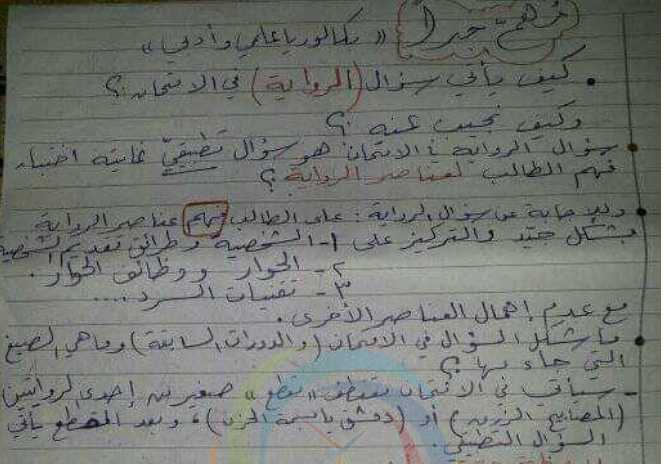 مهم جداً « بكالوريا علمي وأدبي »
• كيف يأتي سؤال (الرواية) في الامتحان ؟
وكيف نجيب عنه ؟
• سؤال الرواية في الامتحان هو سؤال تطبيقي غايته اختبار
فهم الطالب لعناصر الرواية ؟
• وللإجابة عن سؤال الرواية : على الطالب فهم عناصر الرواية
بشكل جيّد والتركيز على ١- الشخصية وطرائق تقديم الشخصية
٢- الحوار ووظائف الحوار .
٣- تقنيات السرد ....
مع عدم إهمال العناصر الأخرى .
• ما شكل السؤال في الامتحان (والدورات السابقة) وما هي الصيغ
التي جاء بها ؟
- سيأتي في الامتحان مقتطف « مقطع » صغير من إحدى الروايتين
(المصابيح الزرق) أو (دمشق يا بسمة الحزن) ، وبعد المقطع يأتي
السؤال التطبيقي .